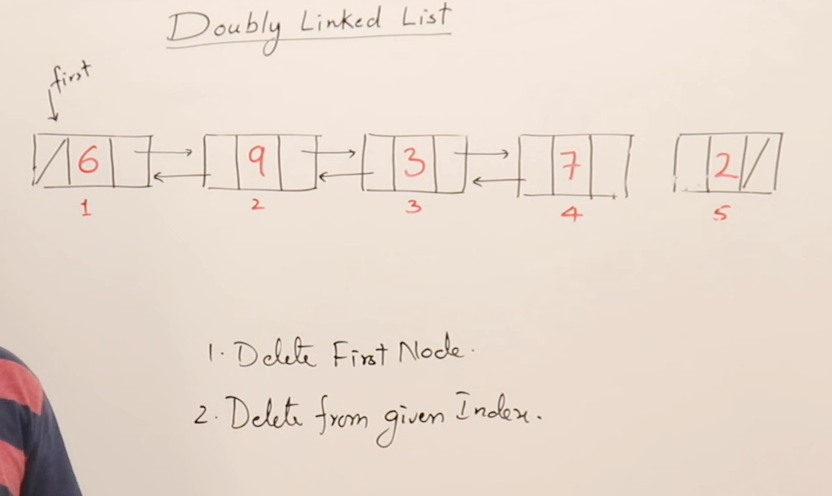 Doubly Linked List
first
6 9 3 7 2
1 2 3 4 5
1. Delete First Node.
2. Delete from given Index.